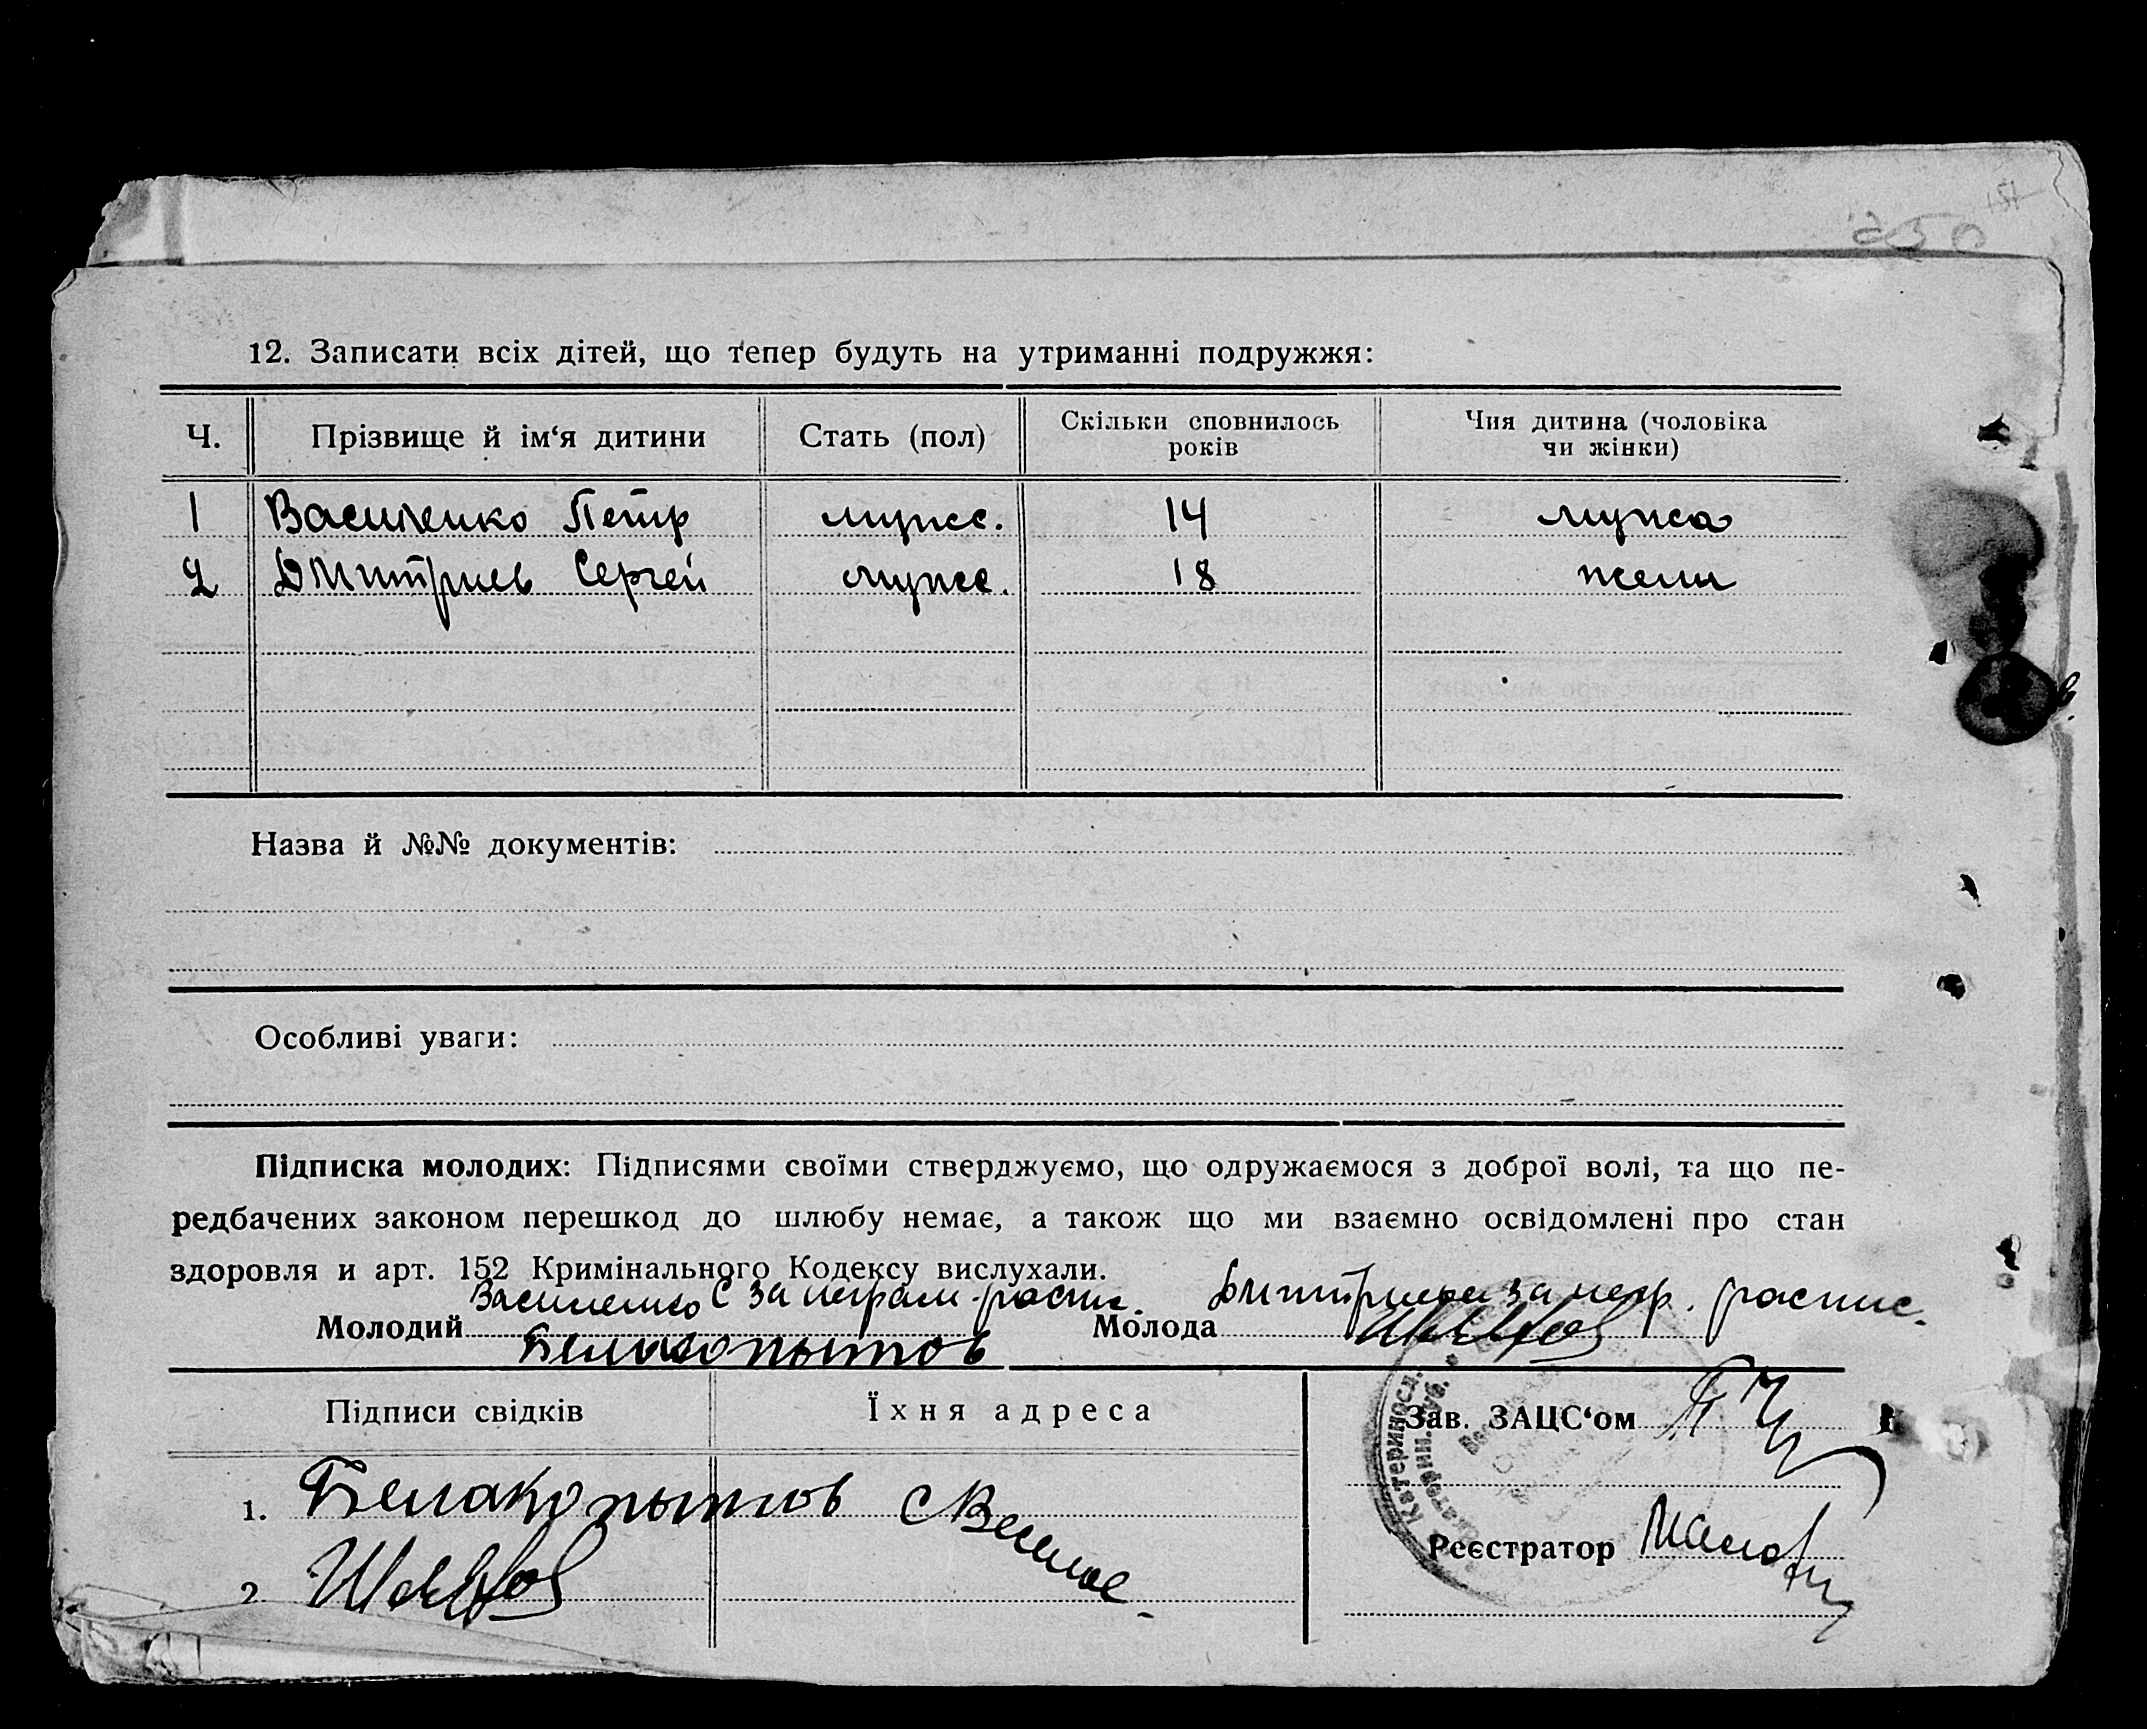 250
12. Записати всіх дітей, що тепер будуть на утриманні подружжя:
Ч. Прізвище й ім‘я дитини Стать (пол) Скільки сповнилось років Чия дитина (чоловіка чи жінки)
1 Василенко Петр мужс. 14 мужа
2 Дмитриев Сергей мужс. 18 жены
Назва й №№ документів:
Особливі уваги:
Підписка молодих: Підписями своїми стверджуємо, що одружаємося з доброї волі, та що пе-
редбачених законом перешкод до шлюбу немає, а також що ми взаємно освідомлені про стан
здоровля и арт. 152 Кримінального Кодексу вислухали.
Василенко С за неграм. распис. Дмитриева за негр. распис.
Молодий Белакопытов Молода
Підписи свідків Їхня адреса Зав. ЗАЦС‘ом
1. Белакопытов
Реєстратор
2
Катериносл.